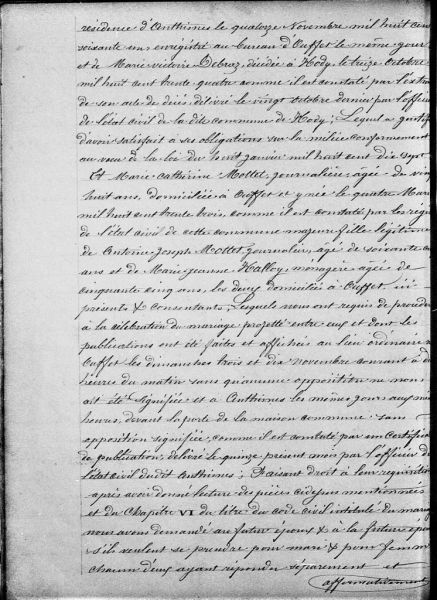 résidence d'Anthisnes le quatorze Novembre mil huit cent
soixante un, enregistré au bureau d'Ouffet le même jour
et de Marie Victoire Debraz, décédée à Hody, le treize Octobre
mil huit cent trente quatre comme il est constaté par l'extrait
de son acte de décès, délivré le vingt octobre dernier par l'officier
de l'état civil de la dite commune de Hody; Lequel a justifié
d'avoir satisfait à ses obligations sur la milice conformément
au vœu de la loi du huit janvier mil huit cent dix sept
Et Marie Catherine Mottet, journalière, agée de vingt
huit ans, domiciliée à Ouffet et y née le quatre Mars
mil huit cent trente trois, comme il est constaté par les régistres
de l'état civil de cette commune majeure fille légitime
de Antoine Joseph Mottet journalier, agé de soixante
ans et de Marie Jeanne Halloy, menagère agée de
cinquante cinq ans, les deux domiciliés à Ouffet, ici
présents & consentants; Lesquels nous ont requis de procéder
à la célébration du mariage projetté entre eux et dont les
publications ont été faites et affichées au lieu ordinaire à
Ouffet les dimanches trois et dix novembre courant à
heures du matin sans qu'aucune opposition ne nous
ait été signifiée et à Anthisnes les mêmes jours aux mêmes
heures, devant la porte de la maison commune sans
opposition signifiée, comme il est constaté par un certificat
de publication, délivré le quinze présent mois par l'officier de
l'état civil dudit Anthisnes; Faisant droit à leur requisition
après avoir donné lecture des pièces cidessus mentionnées
et du chapitre VI du titre du code civil intitulé du mariage
nous avons demandé au futur époux & à la future épouse
s'ils veulent se prendre pour mari & pour femme
chacun d'eux ayant répondu séparément et
affirmativement